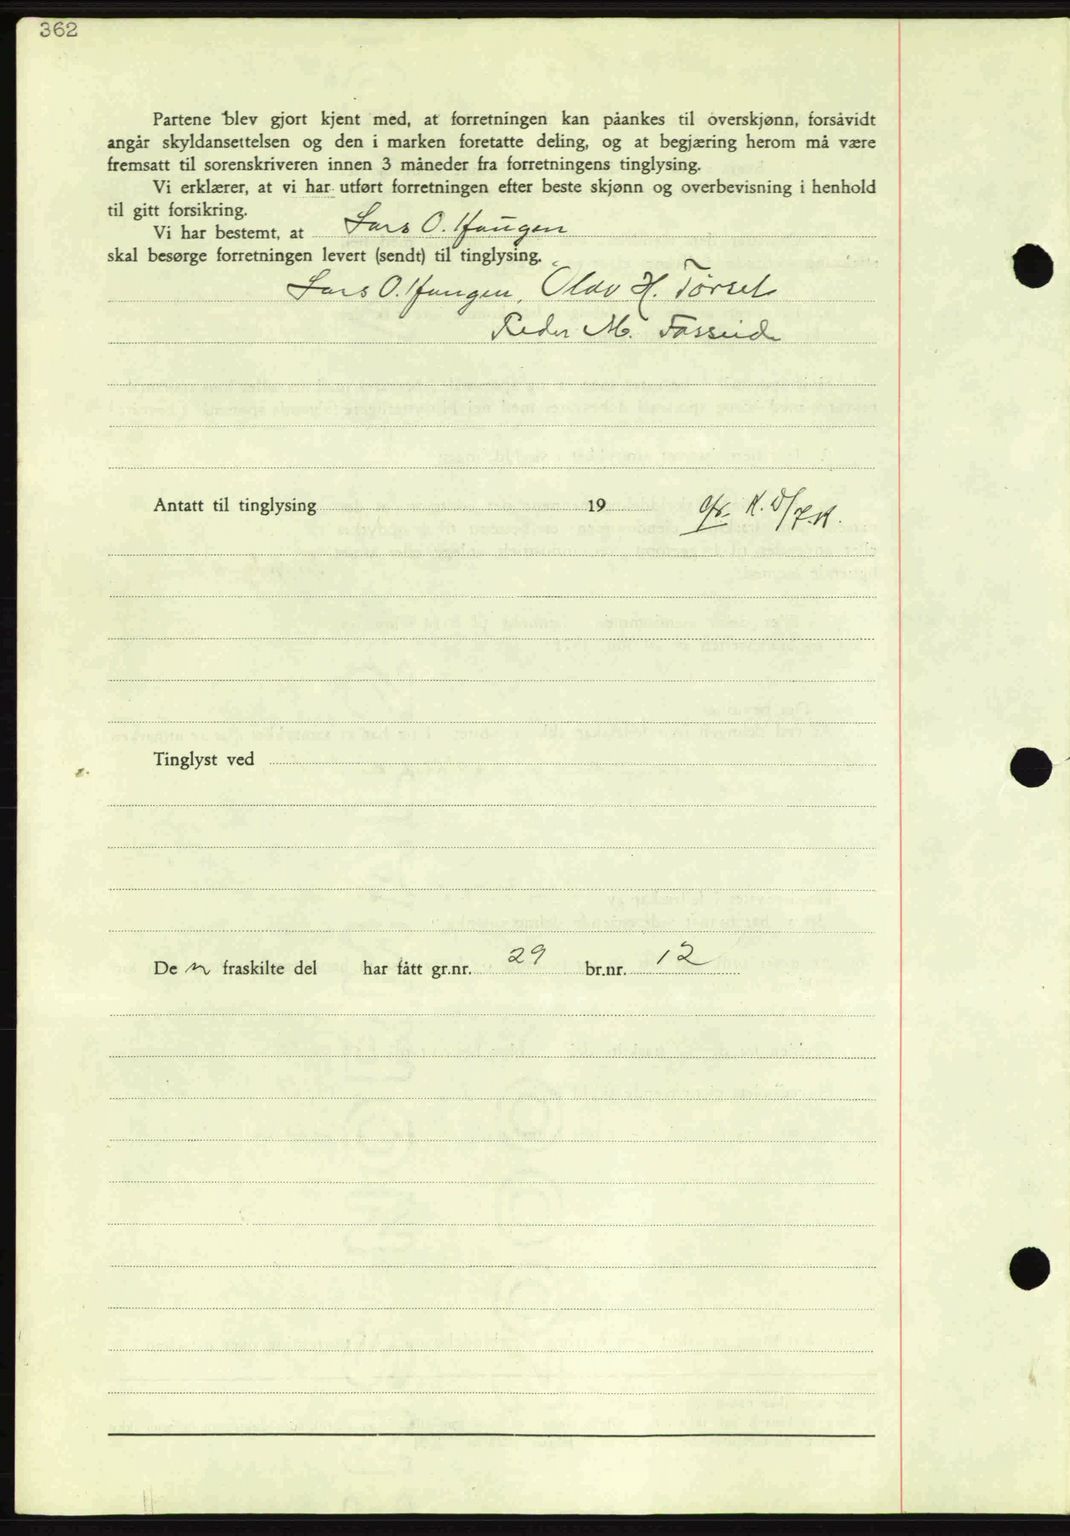 362
Partene blev gjort kjent med, at forretningen kan påankes til overskjønn, forsåvidt
angår skyldansettelsen og den i marken foretatte deling, og at begjæring herom må være
fremsatt til sorenskriveren innen 3 måneder fra forretningens tinglysing.
Vi erklærer, at vi har utført forretningen efter beste skjønn og overbevisning i henhold
til gitt forsikring.
Vi har bestemt, at Lars O. Haugen
skal besørge forretningen levert (sendt) til tinglysing.
Lars O. Haugen, Olav H. Tørset
Peder M.
Antatt til tinglysing 19
Tinglyst ved
De n fraskilte del har fått gr.nr. 29 br.nr. 12